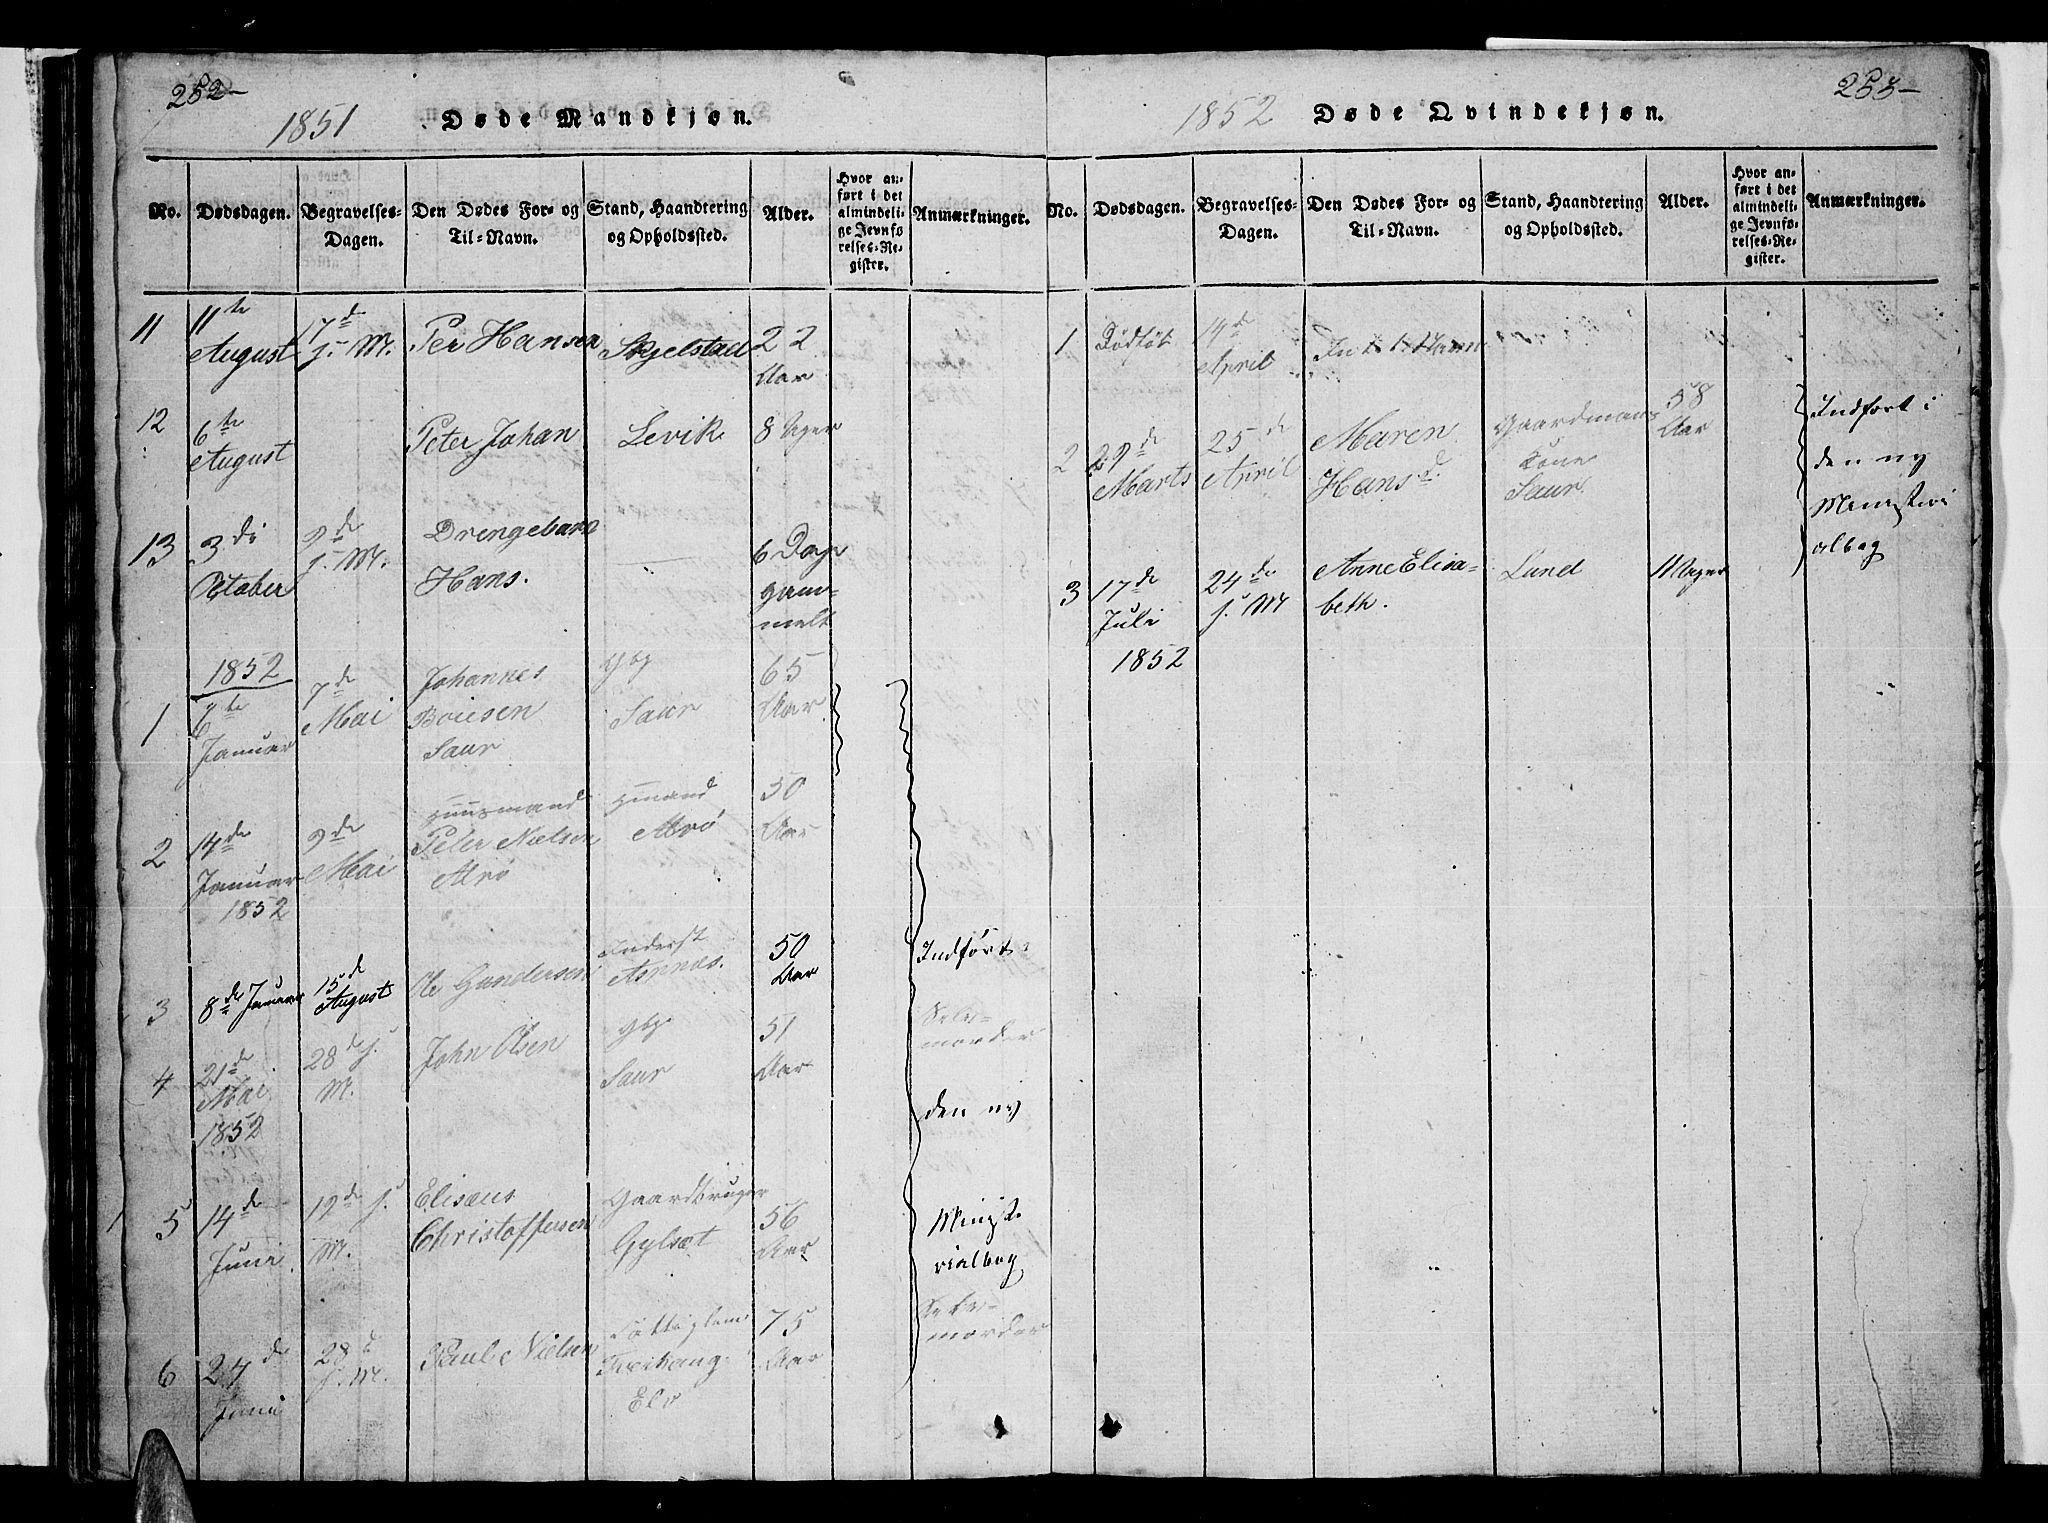 252-
1851
Døde Mandkjøn.
No.
Dødsdagen.
Begravelses-
Dagen.
Den Dødes For- og
Til-Navn.
Stand, Haandtering
og Opholdssted.
Alder.
Hvor an-
ført i det
almindeli-
ge Jevnfø-
relses-Re-
gister.
Anmærkninger.
11
11te
August
17de
j. M.
Per Hansen
Skjelstad
22
Aar
12
6te
August
Peter Johan
Levik
8 Uger
13
3di
October
9de
j. M.
Drengebarn
Hans.
6 Dage
gam-
melt
1852
1
6te
Januar
7de
Mai
Johannes
Boiesen
Saur
Gbg
Saur
65
Aar
2
14de
Januar
1852
9de
Mai
Huusmand
Peter Nielsen
Arø
Hmand
Arø
50
Aar
3
8de Januar
15de
August
Ole Gundersen
Inderst
Aspnæs.
50
Aar
Indført i
4
21de
Mai
1852
28de j.
M.
John Olsen
Gbg.
Saur
51
Aar
Selv-
morder
den ny
5
14de
Juni
19de j.
M.
Elisæus
Christoffersen
Gaardbruger
Gylset
56
Aar
Ministe
rialbog
6
24de
Juni
28de
j. M.
Paul Nielsen
Elv
75
Aar
Selv-
morder
253-
1852
Døde Qvindekjøn.
No.
Dødsdagen.
Begravelses-
Dagen.
Den Dødes For- og
Til-Navn.
Stand, Haandtering
og Opholdssted.
Alder.
Hvor an-
ført i det
almindeli-
ge Jevnfø-
relses-Re-
gister.
Anmærkninger.
1
Dødfødt
14de
April
2
29de
Marts
25de
April
Maren
Hansd.
Gaardmans
Kone
Saur
58
Aar
Indført i
den ny
Ministeri
albog
3
17de
Juli
1852
24de
j. M
Anne Elisa-
beth.
Lund
11 Uger